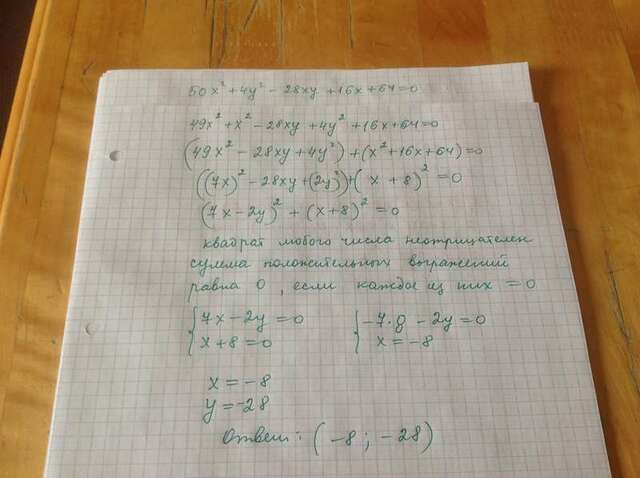 50x² + 4y² - 28xy + 16x + 64 = 0
49x² + x² - 28xy + 4y² + 16x + 64 = 0
(49x² - 28xy + 4y²) + (x² + 16x + 64) = 0
((7x)² - 28xy + (2y)²) + (x + 8)² = 0
(7x - 2y)² + (x + 8)² = 0
квадрат любого числа неотрицателен
сумма положительных выражений
равна 0, если каждое из них = 0
{ 7x - 2y = 0 { -7·8 - 2y = 0
x + 8 = 0 x = -8
x = -8
y = -28
Ответ: (-8; -28)